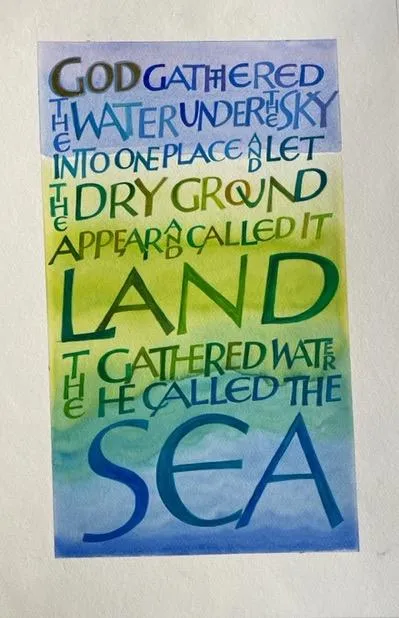 GOD GATHERED
THE WATER UNDER THE SKY
INTO ONE PLACE AND LET
THE DRY GROUND
APPEAR AND CALLED IT
LAND
THE GATHERED WATER
HE CALLED THE
SEA